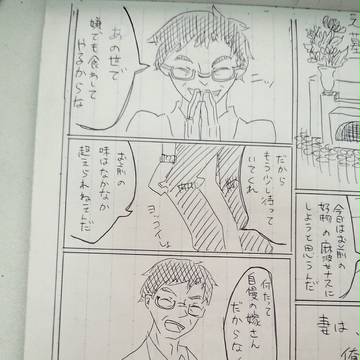 墓
今日はお前の
好物の麻婆ナスに
しようと思うんだ
妻は
俺
だから
もう少し待って
いてくれ
ヨッコイしょ
お前の
味はなかなか
超えられねえんだ
何たって
自慢の嫁さん
だからな
あの世で
嫌でも食わして
やるからな
ニッ